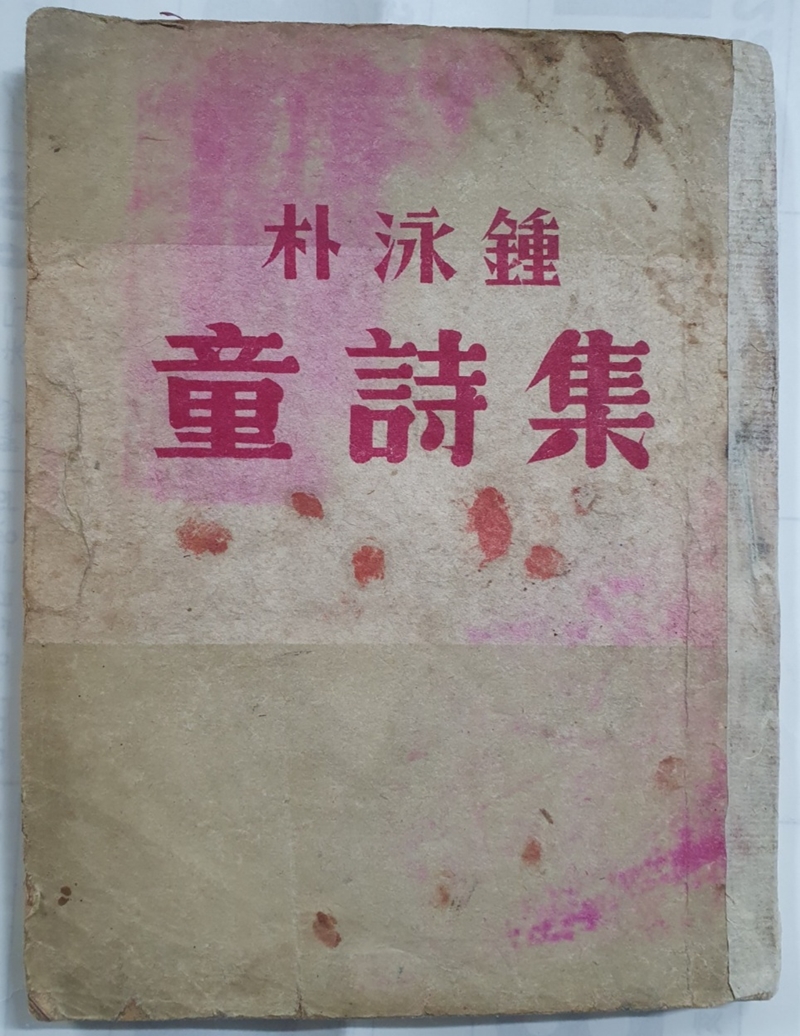 朴泳鍾
童詩集